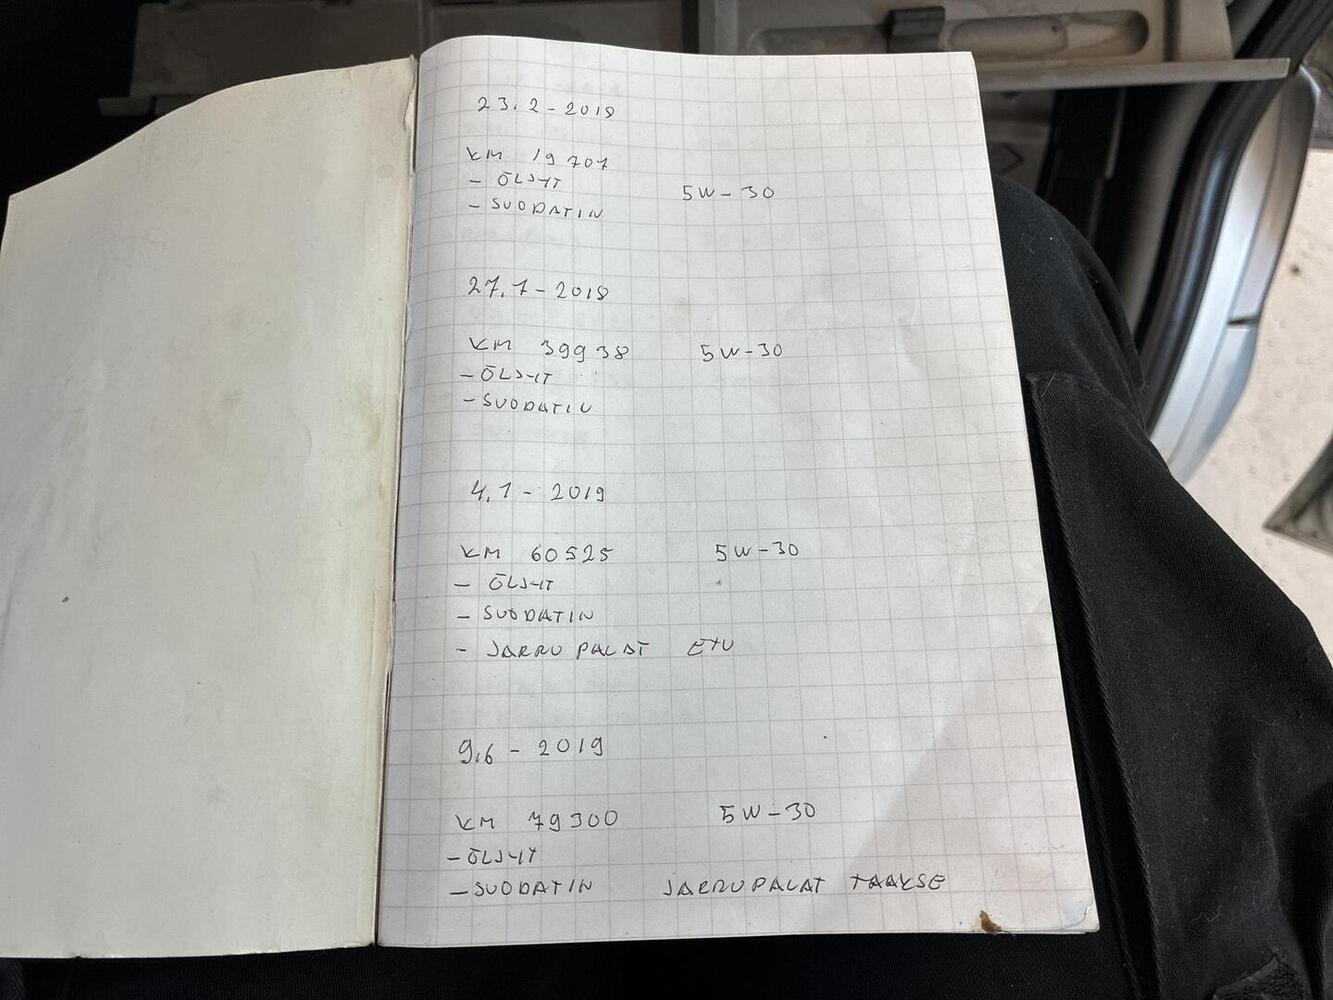 23.2-2018
KM 19707
- ÖLJYT 5W-30
- SUODATIN
27.7-2018
KM 39938 5W-30
- ÖLJYT
- SUODATIN
4.1-2019
KM 60525 5W-30
- ÖLJYT
- SUODATIN
- JARRUPALAT ETU
9.6-2019
KM 79300 5W-30
- ÖLJYT
- SUODATIN JARRUPALAT TAAKSE